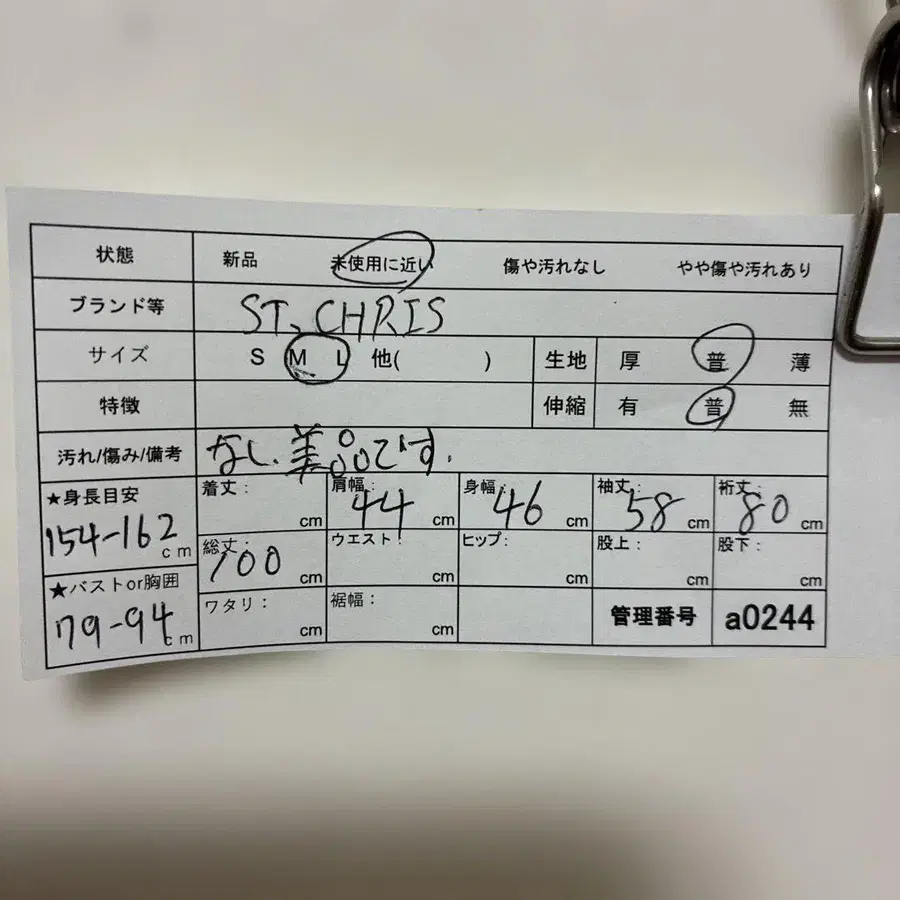 状態 新品 未使用に近い 傷や汚れなし やや傷や汚れあり
ブランド等 ST.CHRIS
サイズ S M L 他( ) 生地 厚 普 薄
特徴 伸縮 有 普 無
汚れ/傷み/備考 なし.美品です.
★身長目安 着丈: cm 肩幅: 44 cm 身幅: 46 cm 袖丈: 58 cm 裄丈: 80 cm
154-162 cm
総丈: 100 cm ウエスト: cm ヒップ: cm 股上: cm 股下: cm
★バストor胸囲
79-94 cm
ワタリ: cm 裾幅: cm 管理番号 a0244